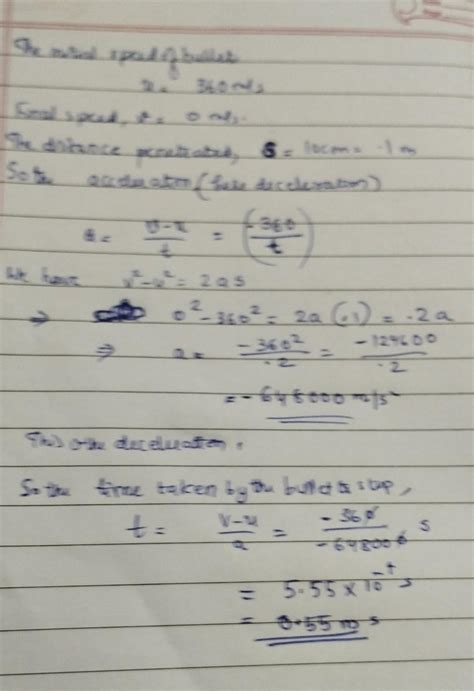 The initial speed of bullet
u = 360 m/s
Final speed, v = 0 m/s.
The distance penetrated, S = 10cm = .1 m
So the acceleration (here deceleration)
a = v-u/t = (-360/t)
We have v²-u² = 2as
⇒ 0²-360² = 2a(.1) = .2a
⇒ a = -360²/.2 = -129600/.2
= -648000 m/s²
This is the deceleration.
So the time taken by the bullet to stop,
t = v-u/a = -360/-648000 s
= 5.55 × 10⁻⁴ s
= 0.55 m s